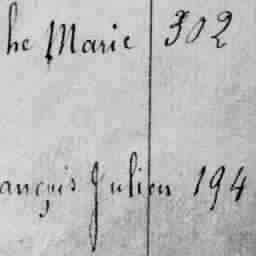 he Marie 302
ançois Julien 194